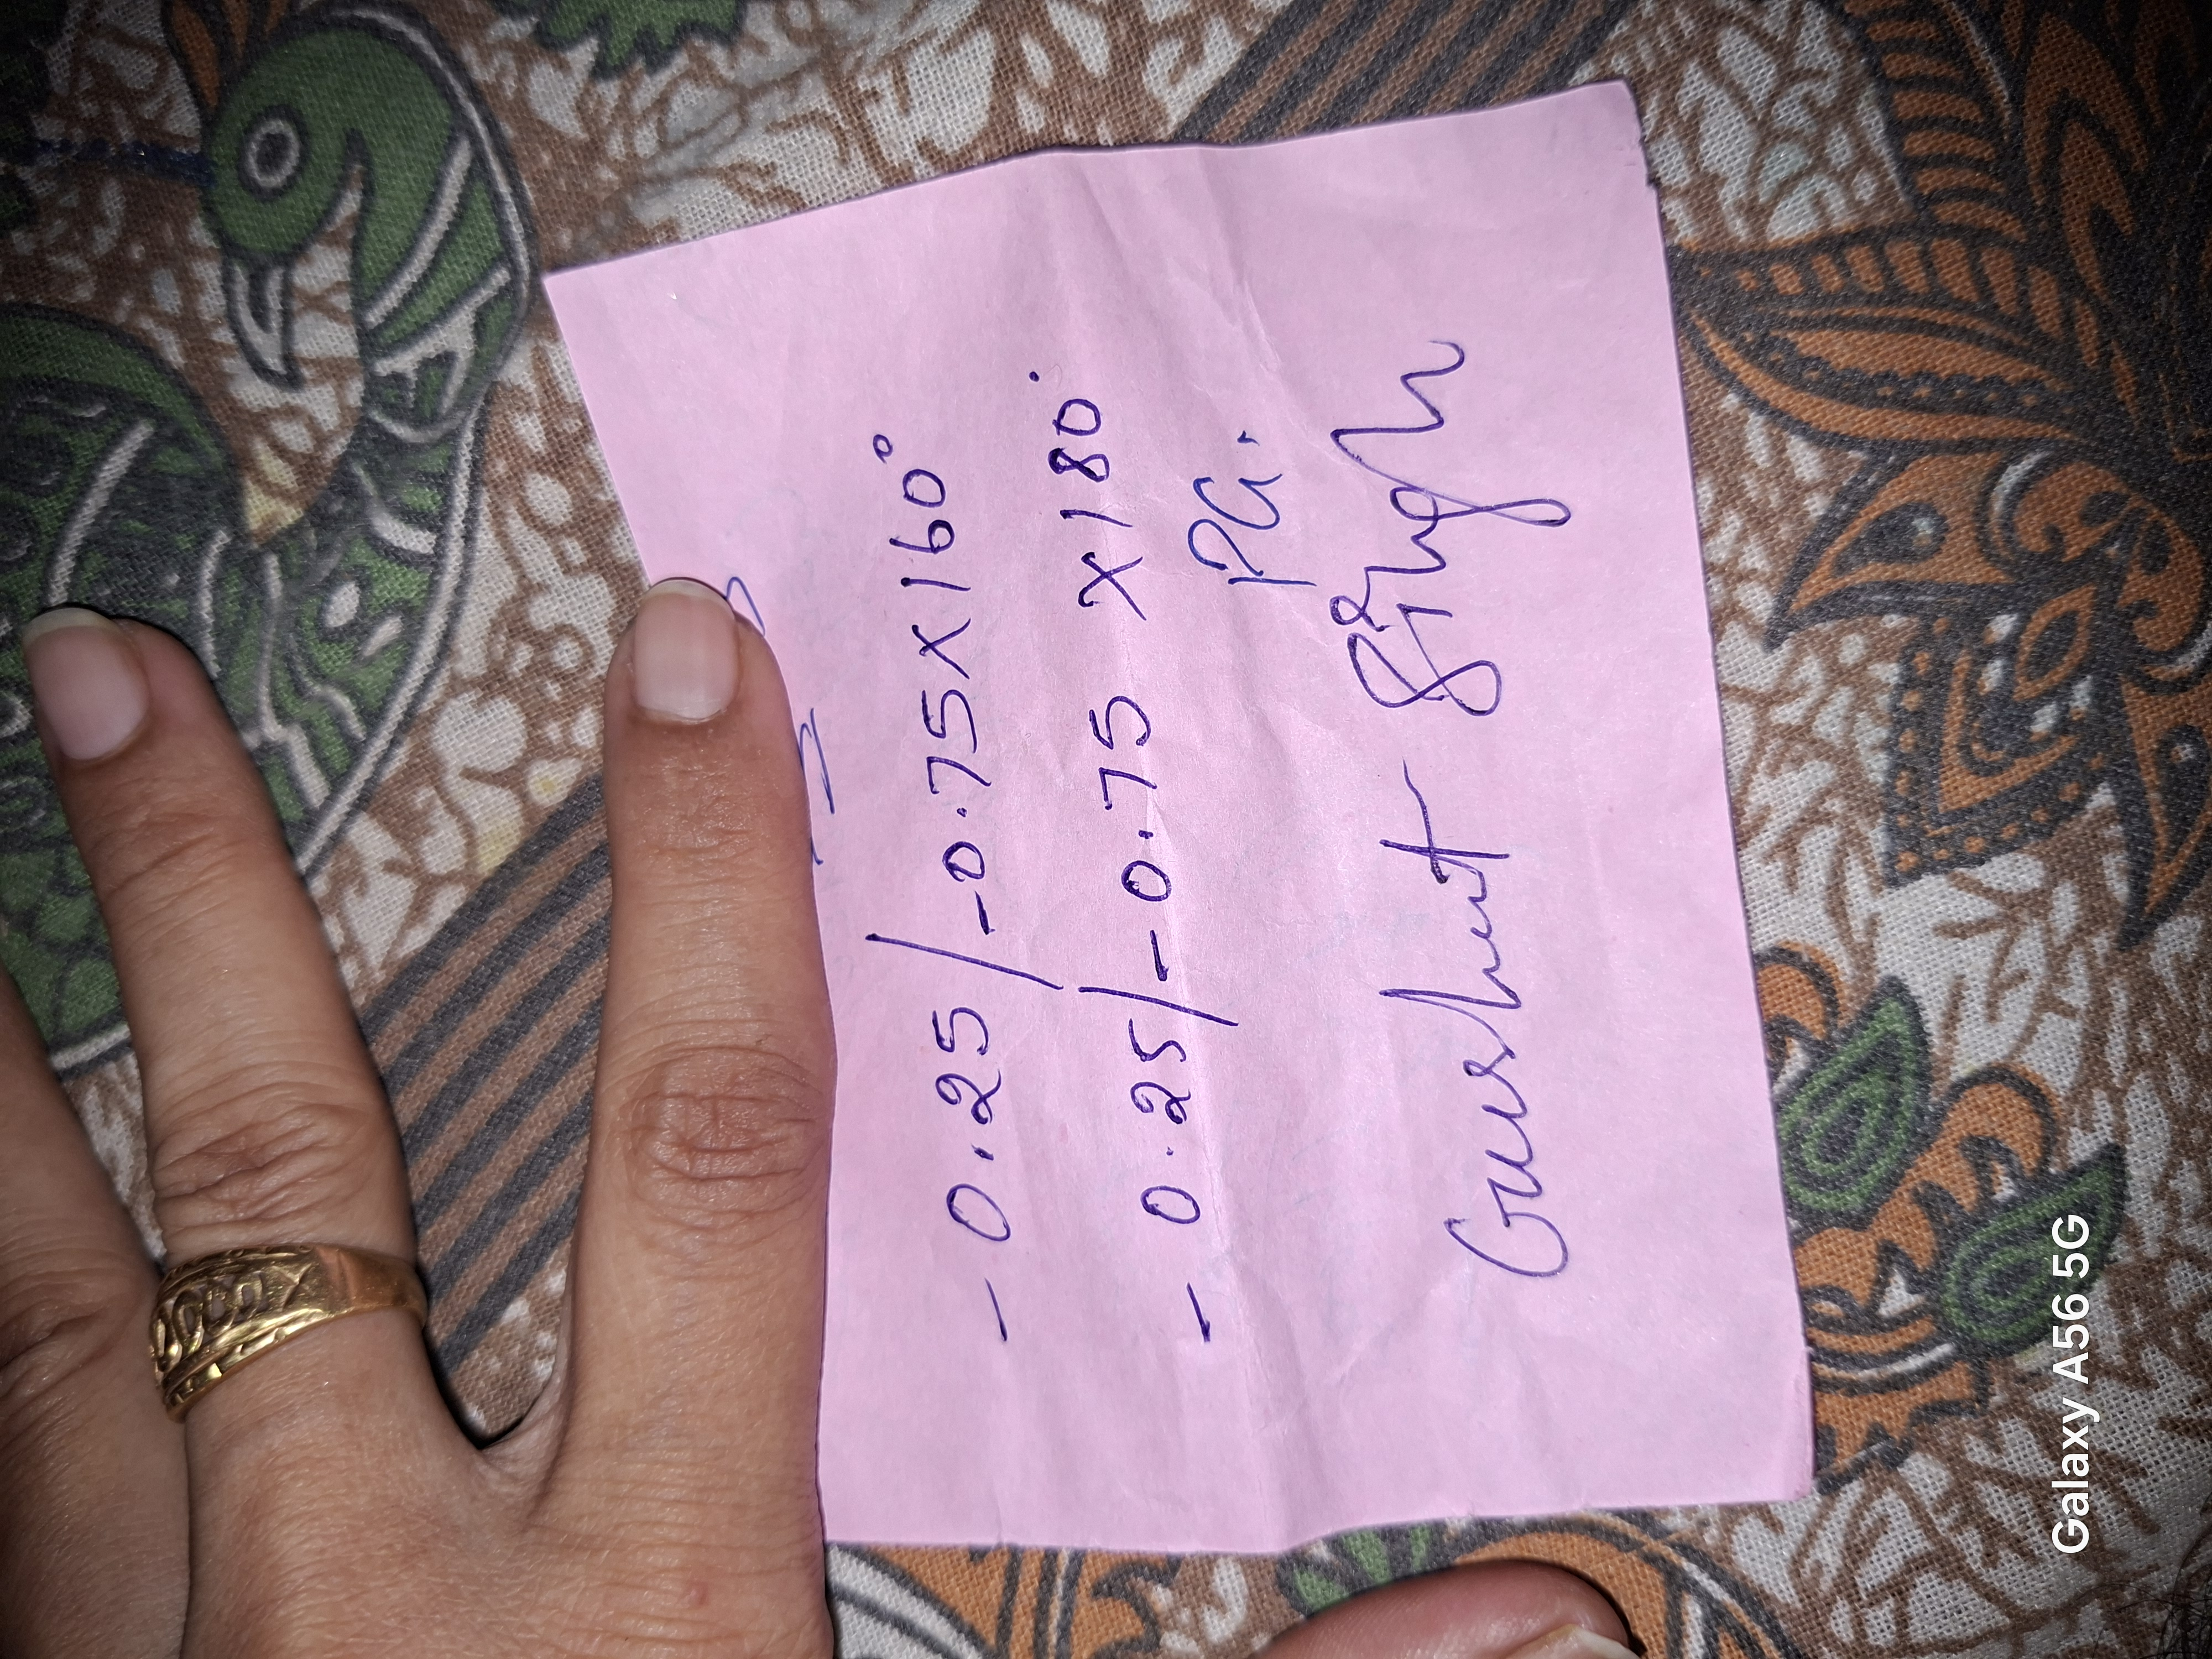 - 0.25 / -0.75 X 160°
- 0.25 / -0.75 X 180°
PG.
Singh
Galaxy A56 5G